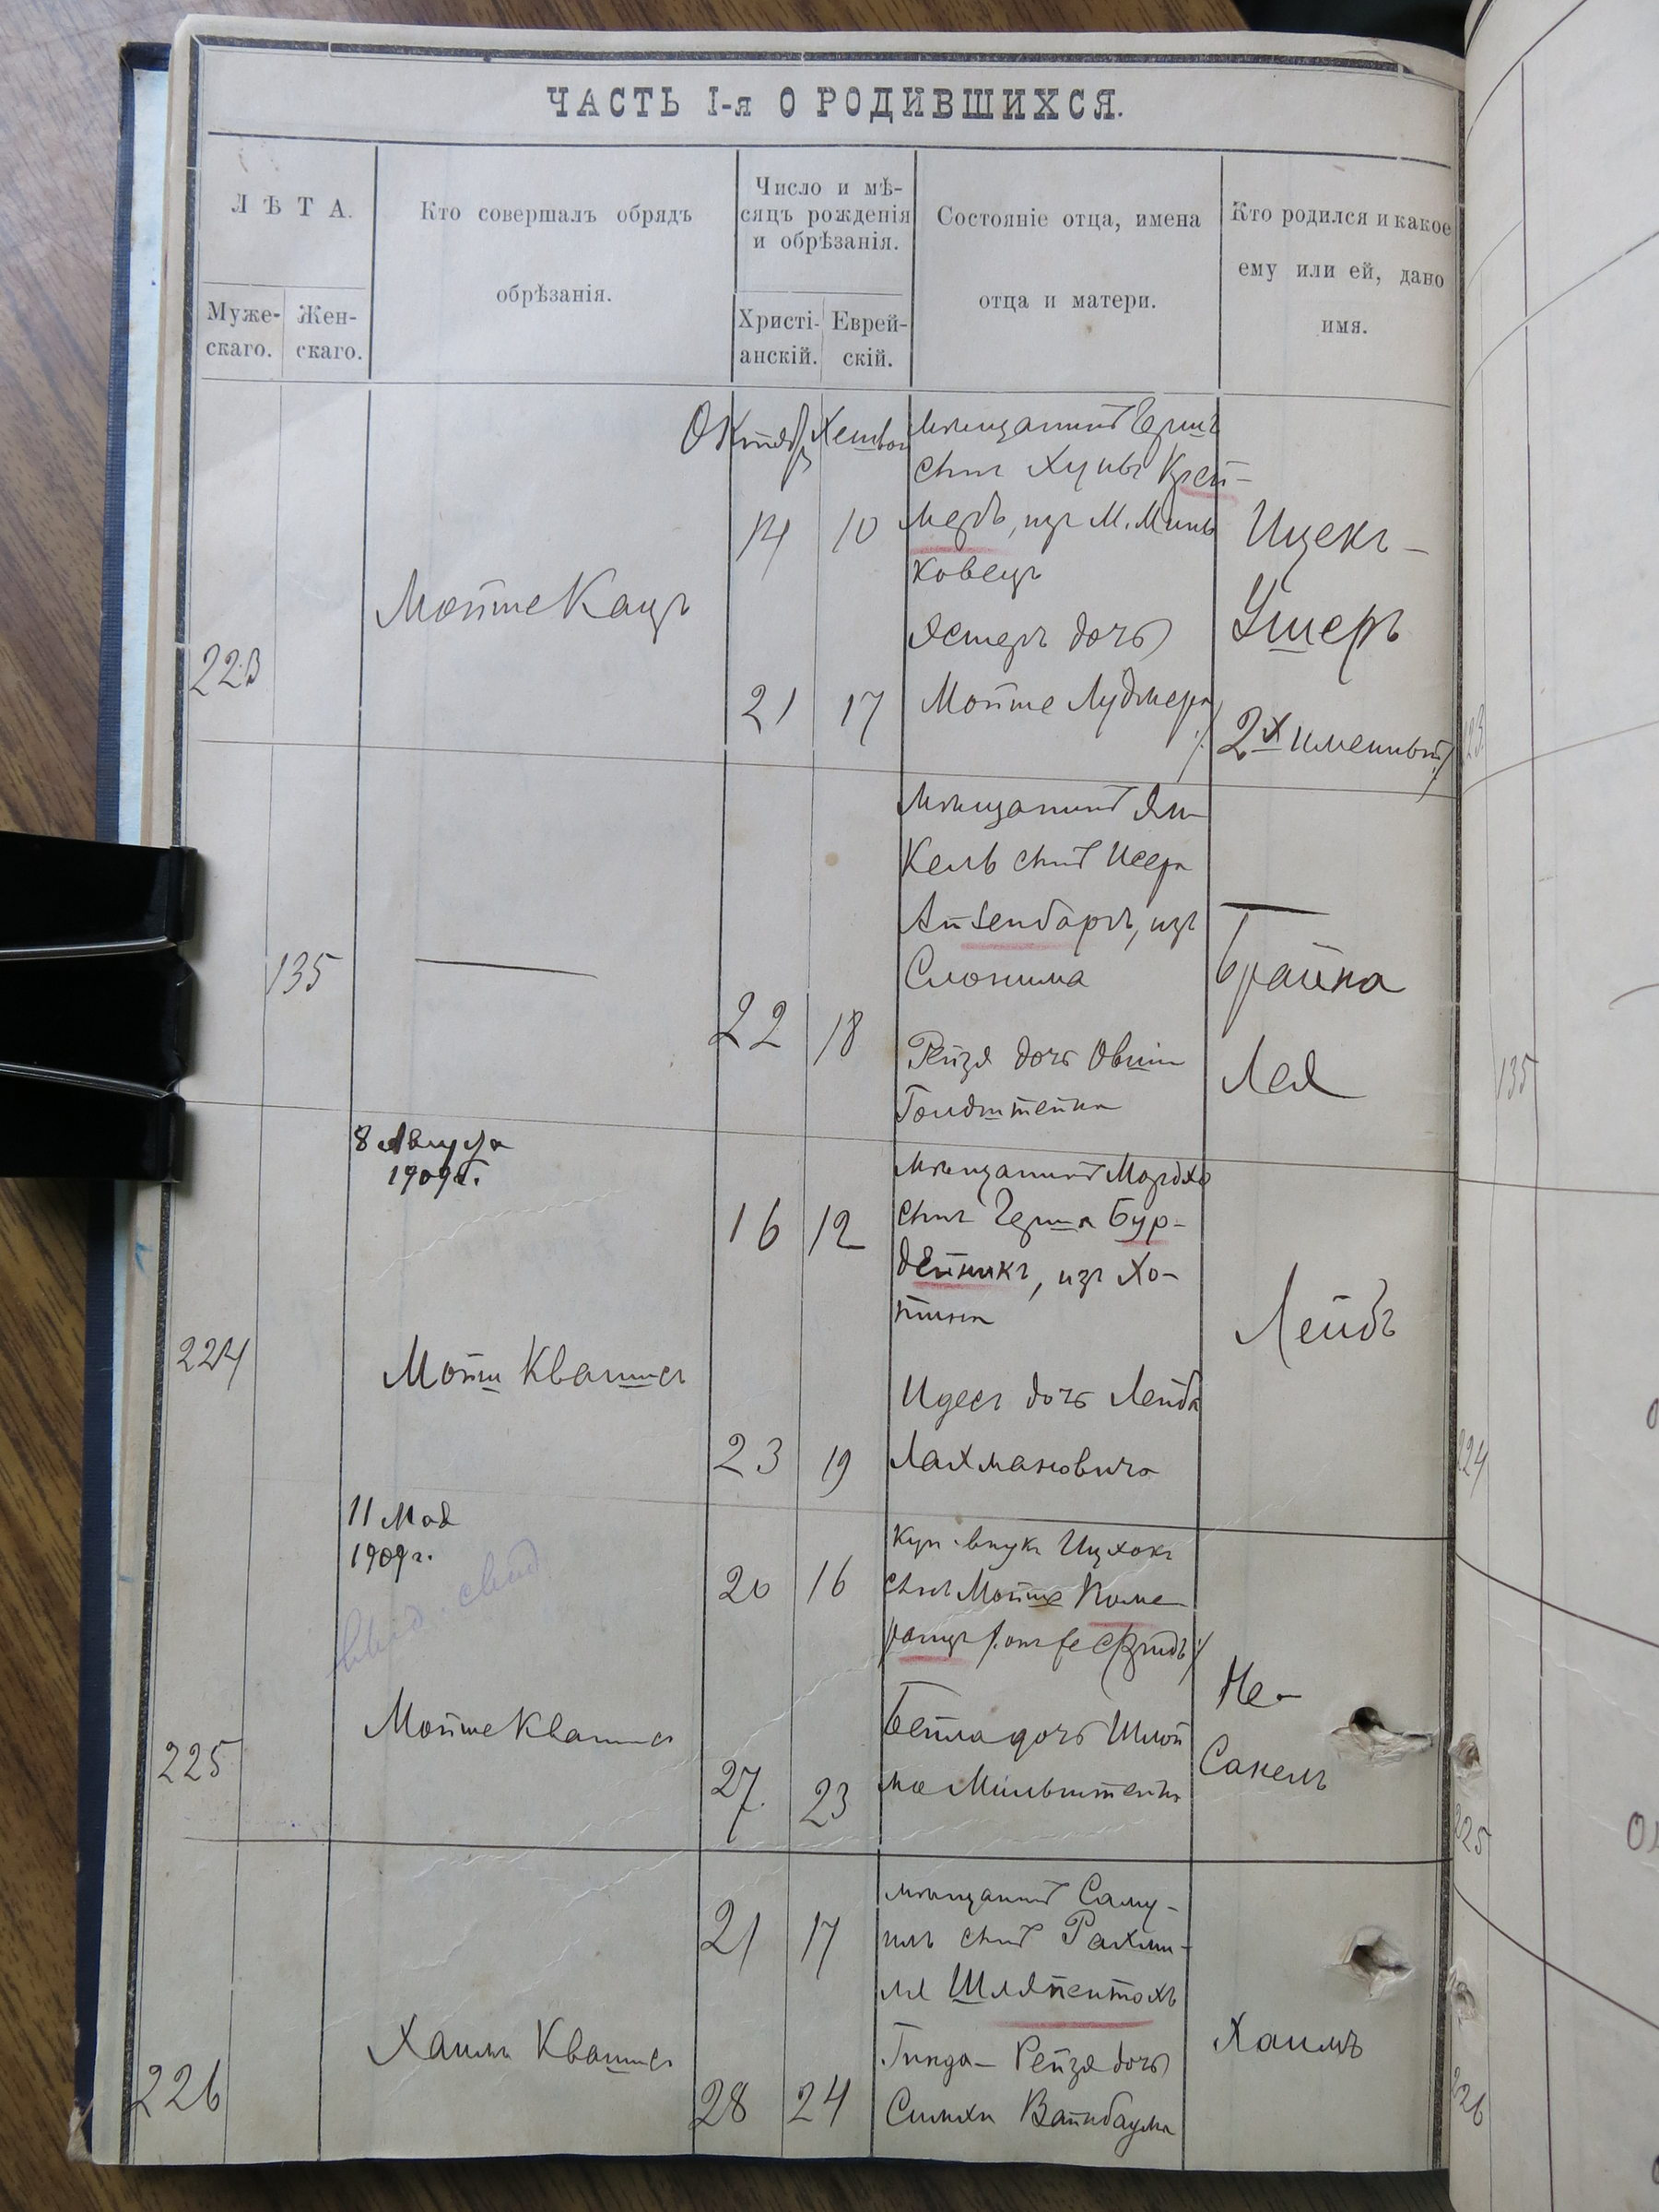 ЧАСТЬ I-я О РОДИВШИХСЯ.
ЛѢТА.
Муже-
скаго.
Жен-
скаго.
Кто совершалъ обрядъ
обрѣзанія.
Число и мѣ-
сяцъ рожденія
и обрѣзанія.
Христі-
анскій.
Еврей-
скій.
Состояніе отца, имена
отца и матери.
Кто родился и какое
ему или ей, дано
имя.
223
Мойше Кацъ
Октябр Хешвон
14 10
21 17
мѣщанинъ Герш
сынъ Хуны Крей-
мерь, изъ М. Минь
ковецъ
Эстеръ дочь
Мойше Лудмера
Ицекъ-
Ушеръ
2х именный
135
—
22 18
мѣщанинъ Ян-
кель сынъ Исера
Айзенбаръ, изъ
Слонима
Рейзя дочь Овши
Голдштейна
Брайна
Лея
224
8 Августа
1909 г.
Мойш Квашисъ
16 12
23 19
мѣщанинъ Мордхо
сынъ Герша Бур-
дейникъ, изъ Хо-
тина
Идесъ дочь Лейба
Лахмановича
Лейбъ
225
11 Мая
1909 г.
Мойше Квашисъ
20 16
27 23
куп. внукъ Ицхокъ
сынъ Мойше Поме-
ранцъ
Бейла дочь Шлой
ме Мильштейнъ
Не-
Санелъ
226
Хаимъ Квашисъ
21 17
28 24
мѣщанинъ Саму-
иль сынъ Рахми-
ля Шляпентохъ
Гинда-Рейзя дочь
Симхи Вайнбаума
Хаимъ
135
224
225
226